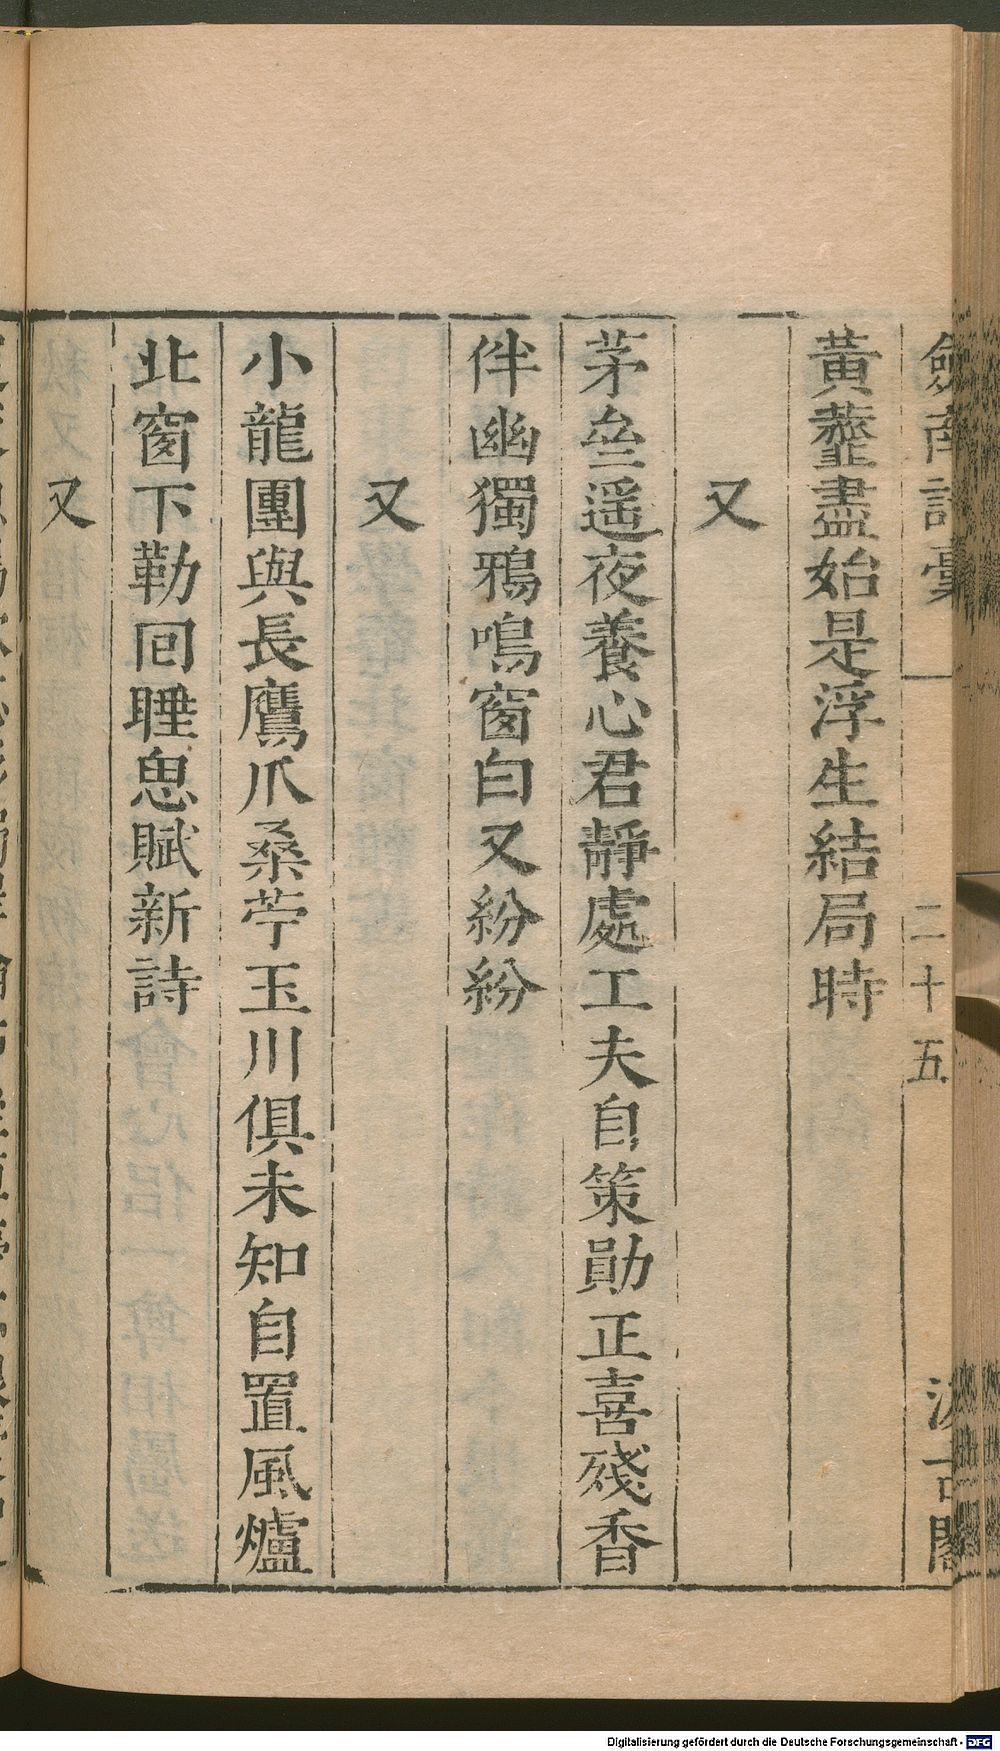 劔南詩稾 二十五 汲古閣
黃虀盡始是浮生結局時
又
茅壘遥夜養心君靜處工夫自策勛正喜殘香
伴幽獨鴉鳴窗白又紛紛
又
小龍團與長鷹爪桑苧玉川俱未知自置風爐
北窗下勒回睡思賦新詩
又
Digitalisierung gefördert durch die Deutsche Forschungsgemeinschaft - DFG